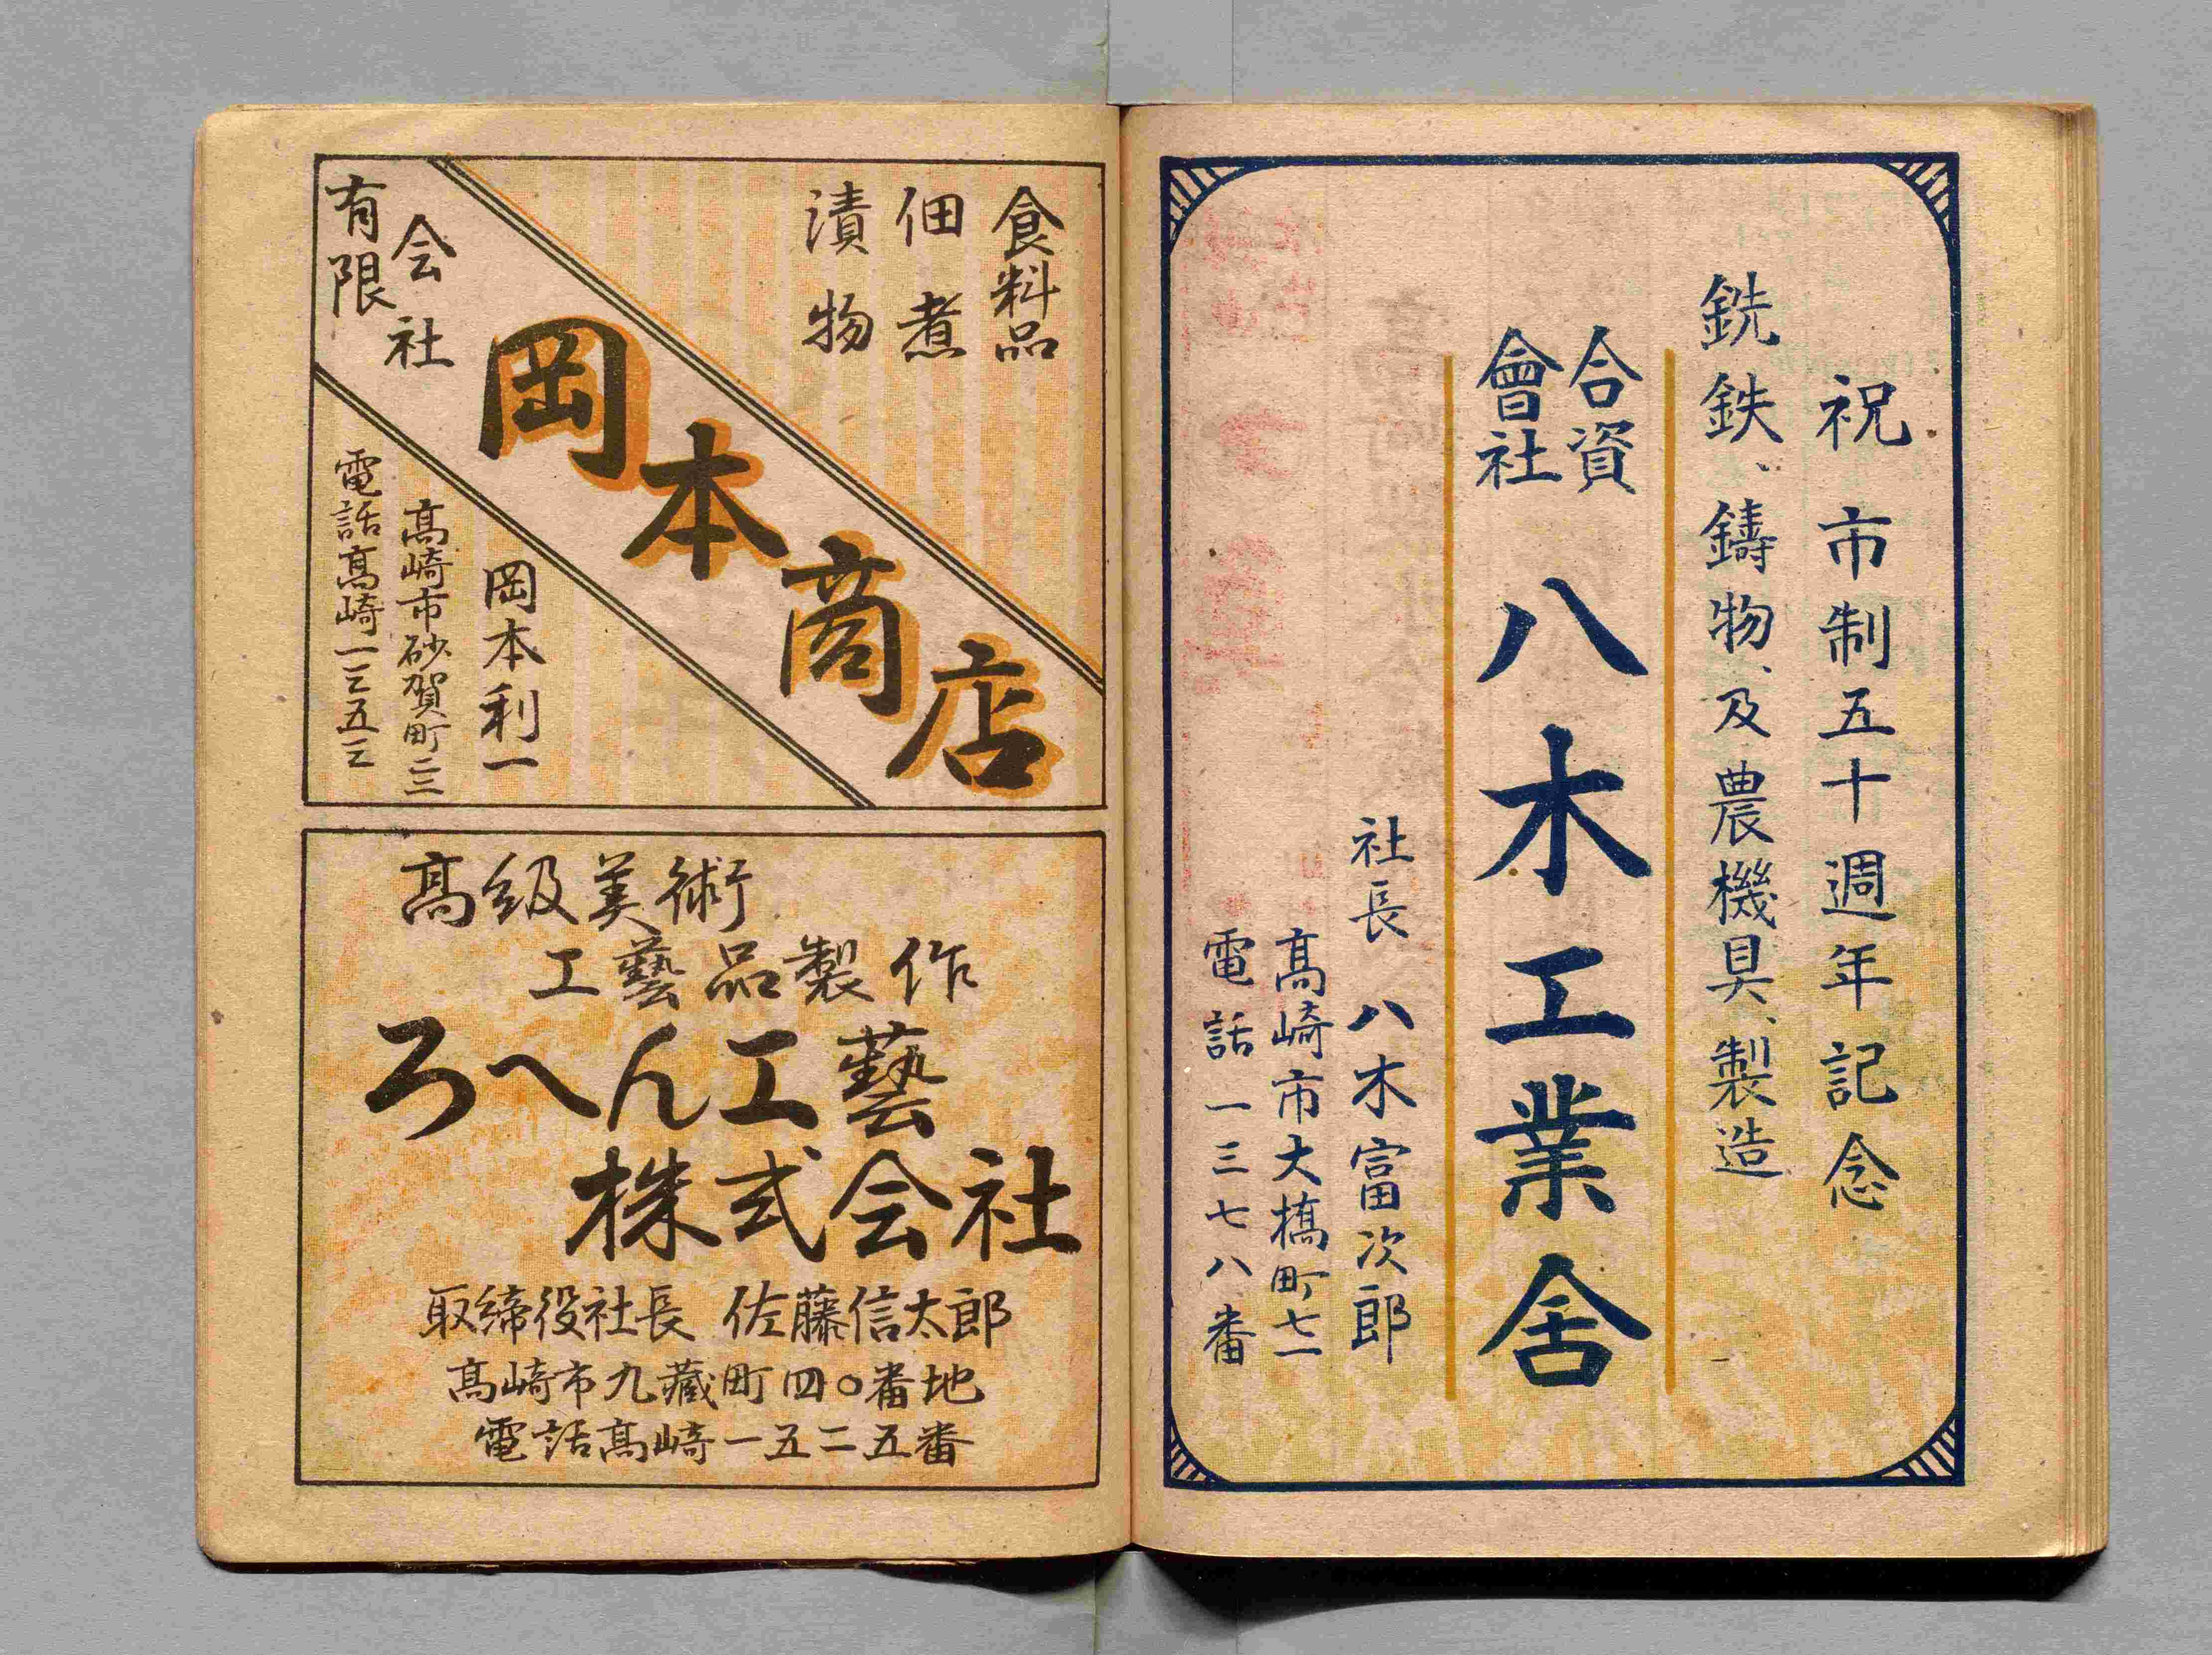 祝市制五十週年記念
銑鉄、鑄物、及農機具、製造
合資
會社
八木工業舎
社長 八木富次郎
髙崎市大橋町七一
電話一三七八番
食料品
佃煮
漬物
有限
会社
岡本商店
岡本利一
髙崎市砂賀町三三
電話髙崎一三五三
髙級美術
工藝品製作
ろへん工藝
株式会社
取締役社長 佐藤信太郎
髙崎市九蔵町四〇番地
電話髙崎一五二五番